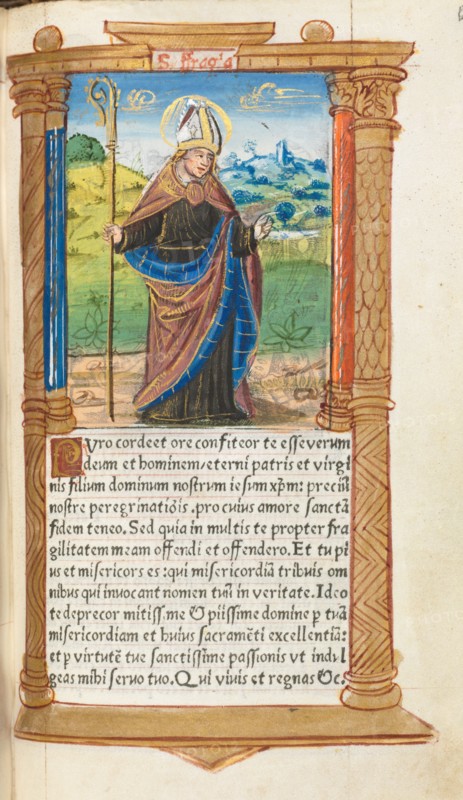 S. ffragia
Pvro corde et ore confiteor te esse verum
deum et hominem/eterni patris et virgi
nis filium dominum nostrum iesum xp̄m: preciū
nostre peregrinatiōis .pro cuius amore sanctā
fidem teneo. Sed quia in multis te propter fra
gilitatem meam offendi et offendero. Et tu pi
us et misericors es :qui misericordiā tribuis om
nibus qui inuocant nomen tuū in veritate. Ideo
te deprecor mitiss.me O piissime domine ꝑ tuā
misericordiam et huius sacramēti excellentiā:
et ꝑ virtutē tue sanctissime passionis vt indul
geas mihi seruo tuo. Qui viuis et regnas &c.